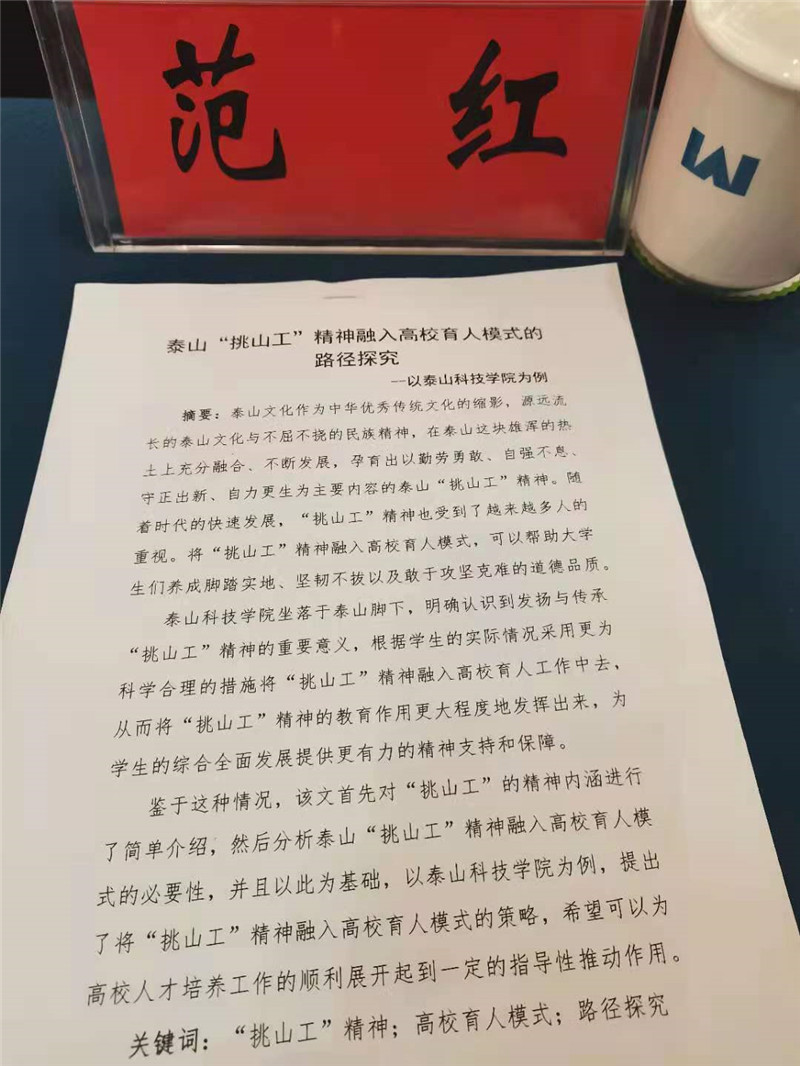 范 红
泰山“挑山工”精神融入高校育人模式的
路径探究
--以泰山科技学院为例
摘要：泰山文化作为中华优秀传统文化的缩影，源远流
长的泰山文化与不屈不挠的民族精神，在泰山这块雄浑的热
土上充分融合、不断发展，孕育出以勤劳勇敢、自强不息、
守正出新、自力更生为主要内容的泰山“挑山工”精神。随
着时代的快速发展，“挑山工”精神也受到了越来越多人的
重视。将“挑山工”精神融入高校育人模式，可以帮助大学
生们养成脚踏实地、坚韧不拔以及敢于攻坚克难的道德品质。
泰山科技学院坐落于泰山脚下，明确认识到发扬与传承
“挑山工”精神的重要意义，根据学生的实际情况采用更为
科学合理的措施将“挑山工”精神融入高校育人工作中去，
从而将“挑山工”精神的教育作用更大程度地发挥出来，为
学生的综合全面发展提供更有力的精神支持和保障。
鉴于这种情况，该文首先对“挑山工”的精神内涵进行
了简单介绍，然后分析泰山“挑山工”精神融入高校育人模
式的必要性，并且以此为基础，以泰山科技学院为例，提出
了将“挑山工”精神融入高校育人模式的策略，希望可以为
高校人才培养工作的顺利展开起到一定的指导性推动作用。
关键词：“挑山工”精神；高校育人模式；路径探究